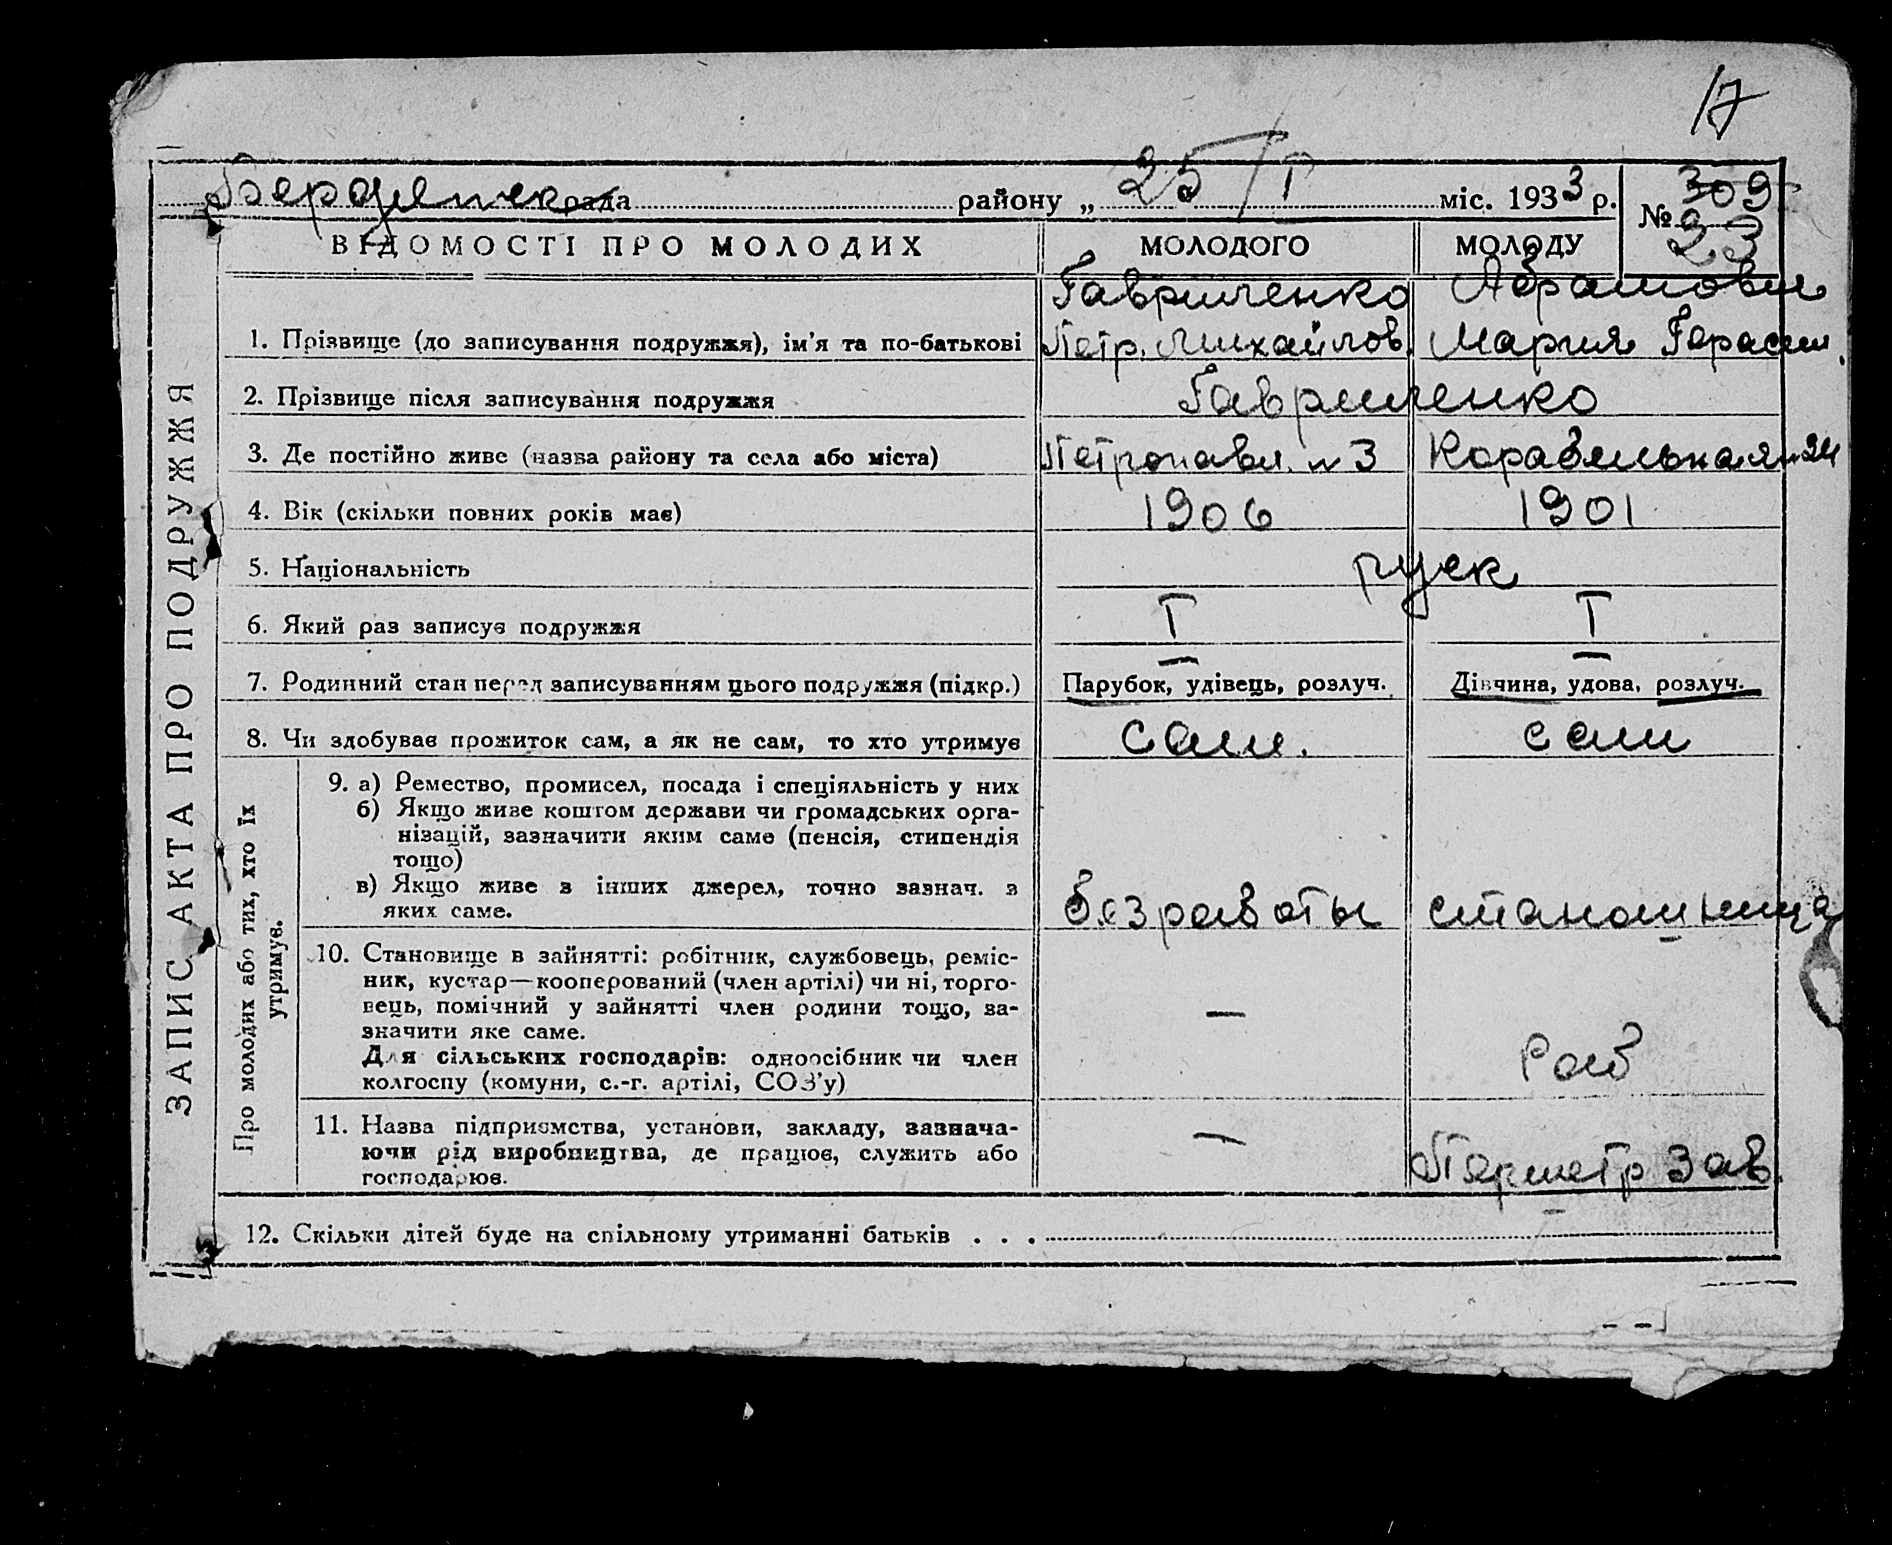 17
Бердянск рада району „ 25/I міс. 1933 р. № 309
23
ВІДОМОСТІ ПРО МОЛОДИХ МОЛОДОГО МОЛОДУ
Гавриченко Абрамови
1. Прізвище (до записування подружжя), ім'я та по-батькові Петр. Михайлов. Мария Герасим.
2. Прізвище після записування подружжя Гавриченко
3. Де постійно живе (назва району та села або міста) Петропавл. № 3 Корабельная № 24
4. Вік (скільки повних років має) 1906 1901
5. Національність руск
6. Який раз записує подружжя I I
7. Родинний стан перед записуванням цього подружжя (підкр.) Парубок, удівець, розлуч. Дівчина, удова, розлуч.
8. Чи здобуває прожиток сам, а як не сам, то хто утримує сам. сам
9. а) Ремество, промисел, посада і спеціяльність у них
б) Якщо живе коштом держави чи громадських орга-
нізацій, зазначити яким саме (пенсія, стипендія
тощо)
в) Якщо живе з інших джерел, точно зазнач. з
яких саме. без работы станошница
10. Становище в зайнятті: робітник, службовець, реміс-
ник, кустар—кооперований (член артілі) чи ні, торго-
вець, помічний у зайнятті член родини тощо, за-
значити яке саме. —
Для сільських господарів: одноосібник чи член Раб
колгоспу (комуни, с.-г. артілі, СОЗ'у)
11. Назва підприємства, установи, закладу, зазнача-
ючи рід виробництва, де працює, служить або — Периметр Зав.
господарює.
12. Скільки дітей буде на спільному утриманні батьків . . . —
ЗАПИС АКТА ПРО ПОДРУЖЖЯ
Про молодих або тих, хто їх
утримує.